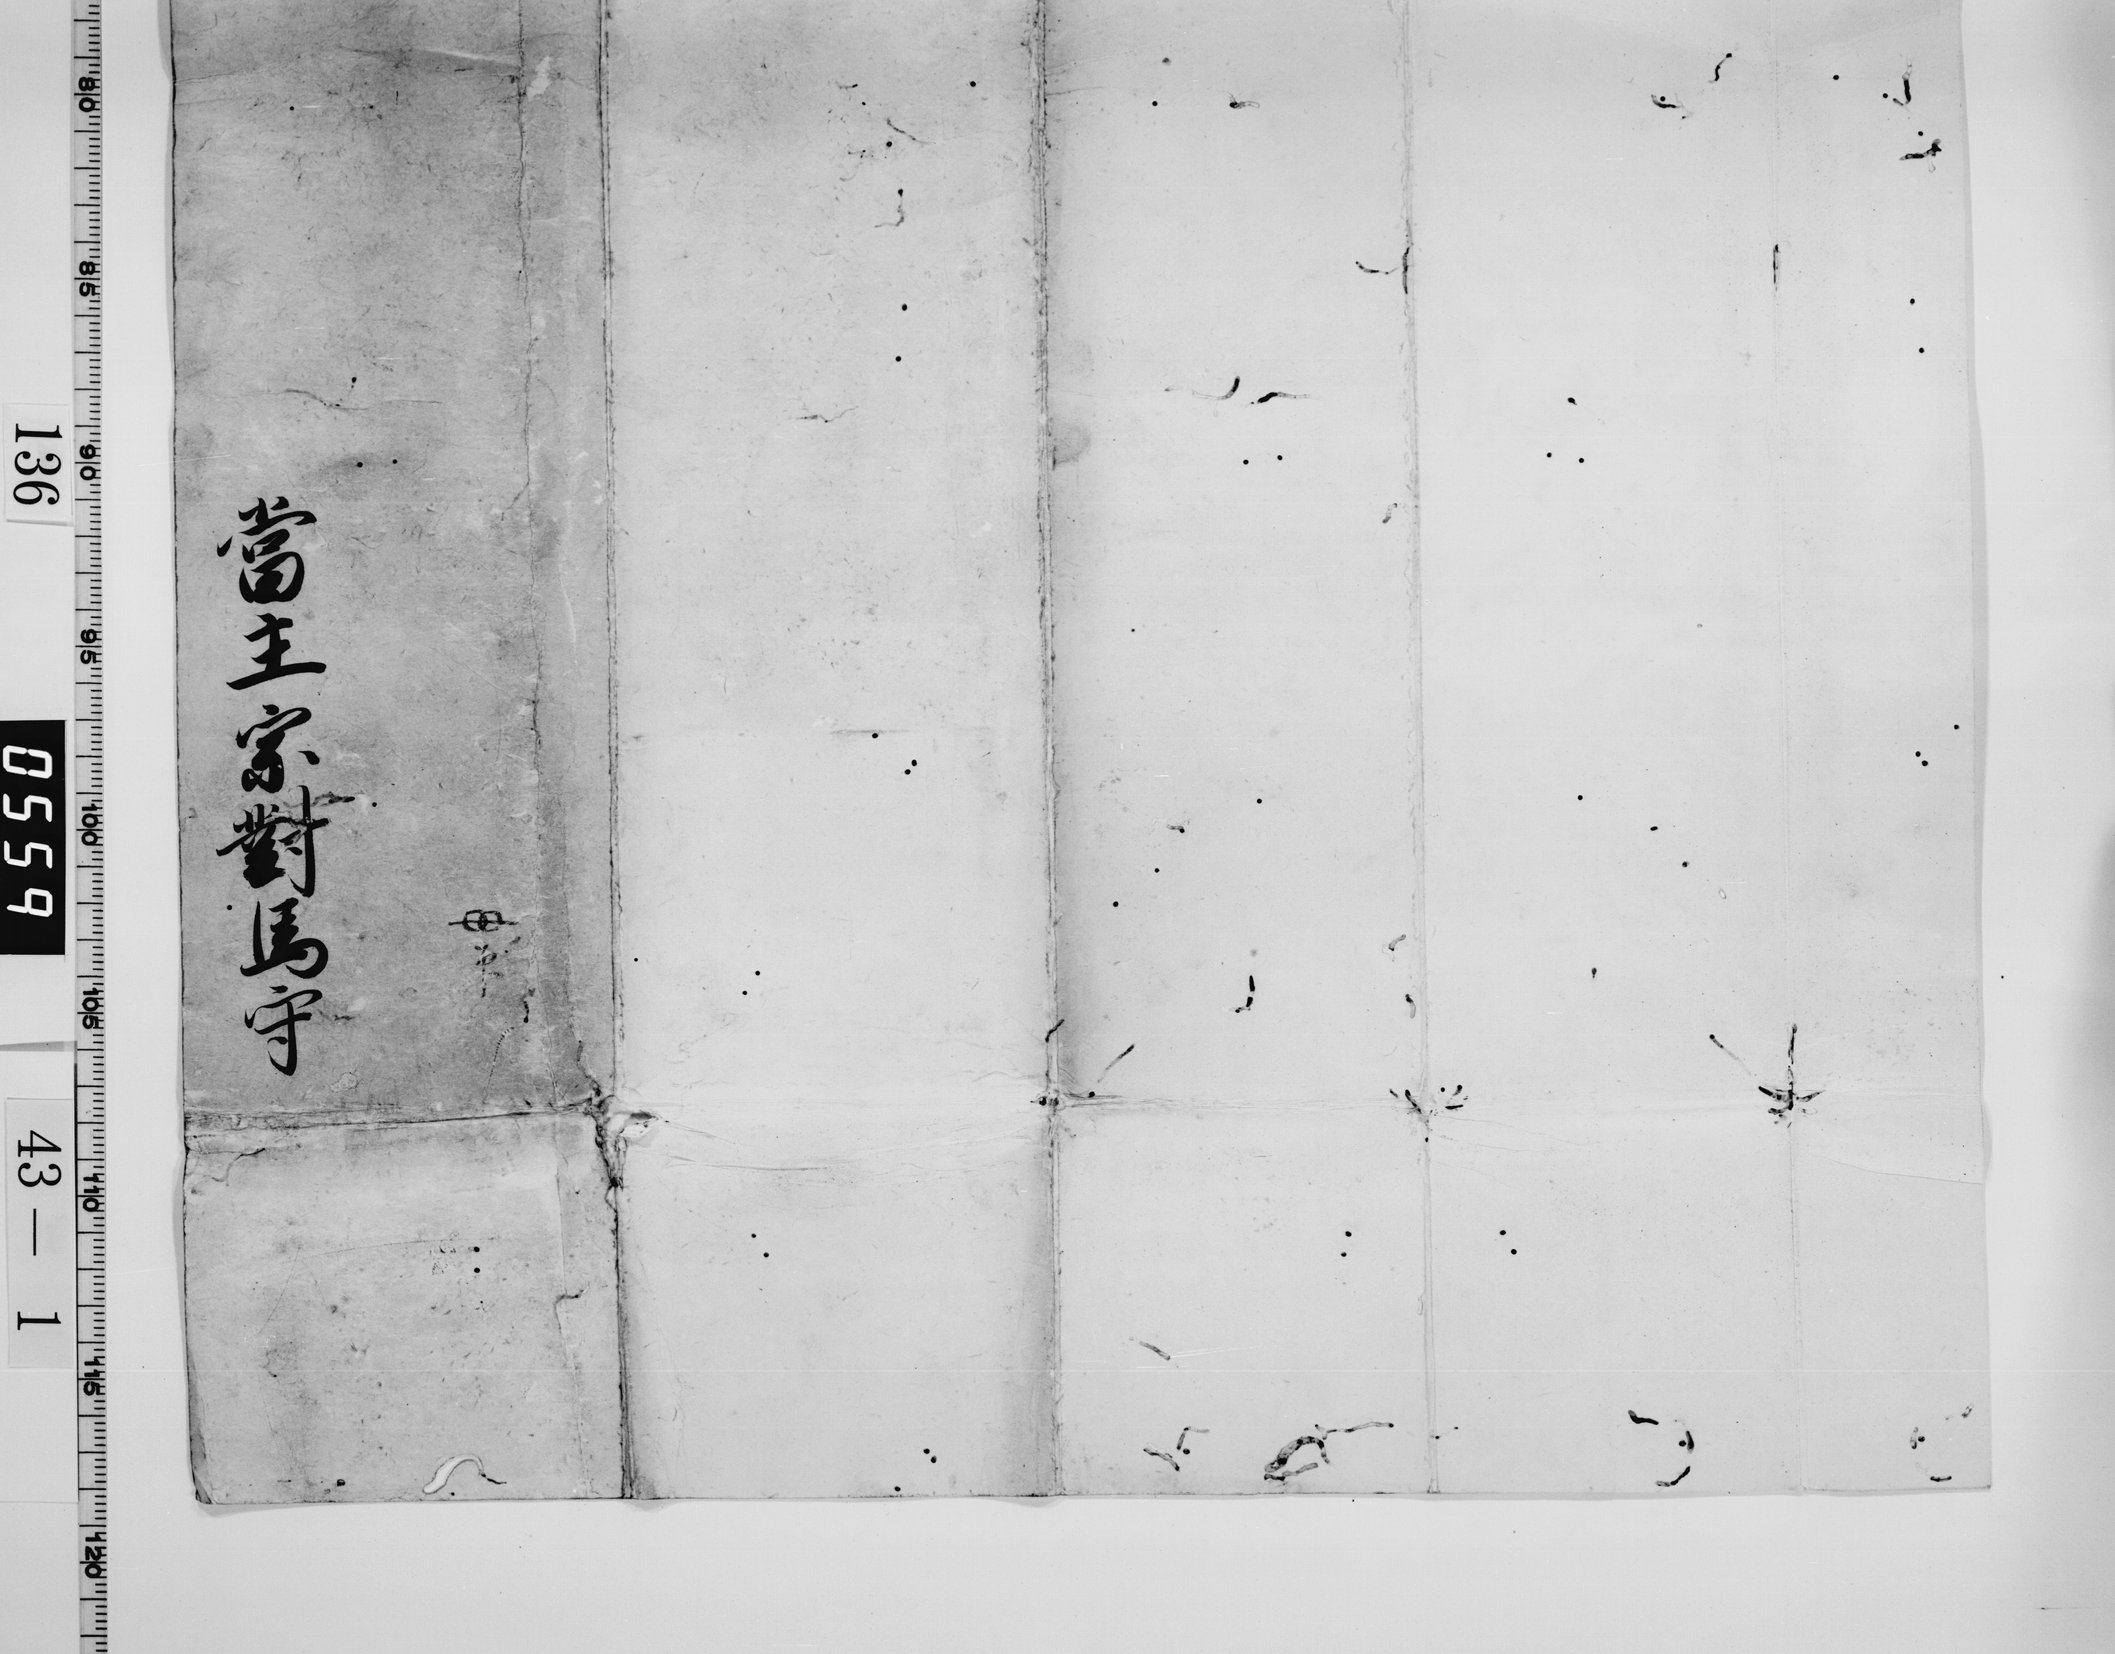 當主宗對馬守
136
0559
43—1
80
85
90
95
100
105
110
115
120